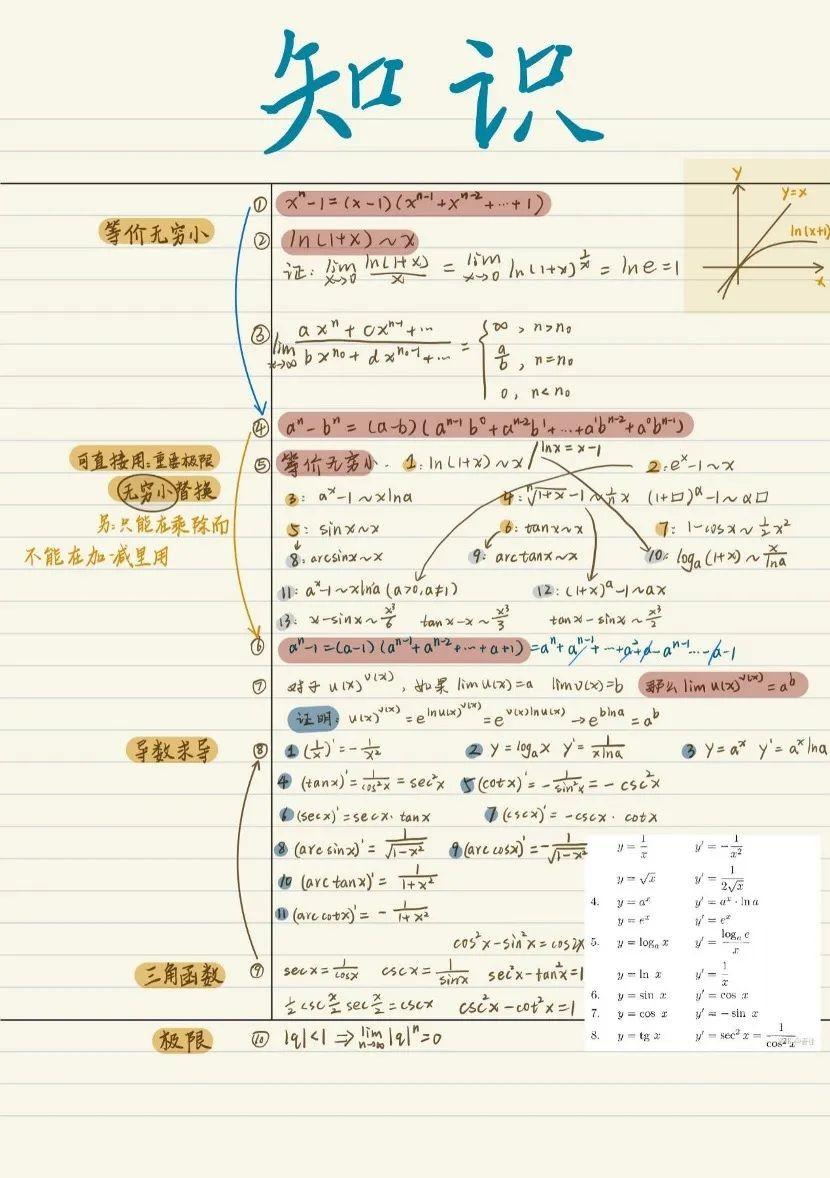 知识
等价无穷小
① xⁿ-1=(x-1)(xⁿ⁻¹+xⁿ⁻²+…+1)
② ln(1+x)~x
证: lim_{x→0} ln(1+x)/x = lim_{x→0} ln(1+x)^{1/x} = ln e = 1
y
y=x
ln(x+1)
x
③ lim_{x→∞} (axⁿ+cxⁿ⁻¹+…)/(bx^{n₀}+dx^{n₀-1}+…) = { ∞, n>n₀
a/b, n=n₀
0, n<n₀
④ aⁿ-bⁿ=(a-b)(aⁿ⁻¹b⁰+aⁿ⁻²b¹+…+a¹bⁿ⁻²+a⁰bⁿ⁻¹)
可直接用:重要极限
无穷小替换
另:只能在乘除而
不能在加减里用
lnx=x-1
⑤ 等价无穷小. 1: ln(1+x)~x 2: eˣ-1~x
3: aˣ-1~xlna 4: ⁿ√(1+x)-1~(1/n)x (1+□)ᵅ-1~α□
5: sinx~x 6: tanx~x 7: 1-cosx~½x²
8: arcsinx~x 9: arctanx~x 10: logₐ(1+x)~x/lna
11: aˣ-1~xlna (a>0,a≠1) 12: (1+x)ᵃ-1~ax
13: x-sinx~x³/6 tanx-x~x³/3 tanx-sinx~x³/2
⑥ aⁿ-1=(a-1)(aⁿ⁻¹+aⁿ⁻²+…+a+1)=aⁿ+aⁿ⁻¹+…+a²+a-aⁿ⁻¹…-a-1
⑦ 对于u(x)^{v(x)}, 如果limu(x)=a limv(x)=b 那么limu(x)^{v(x)}=aᵇ
证明: u(x)^{v(x)}=e^{lnu(x)^{v(x)}}=e^{v(x)lnu(x)}→e^{blna}=aᵇ
导数求导
⑧ 1 (1/x)'=-1/x² 2 y=logₐx y'=1/(xlna) 3 y=aˣ y'=aˣlna
4 (tanx)'=1/cos²x=sec²x 5 (cotx)'=-1/sin²x=-csc²x
6 (secx)'=secx·tanx 7 (cscx)'=-cscx·cotx
8 (arcsinx)'=1/√(1-x²) 9 (arccosx)'=-1/√(1-x²)
10 (arctanx)'=1/(1+x²)
11 (arccotx)'=-1/(1+x²)
y=1/x y'=-1/x²
y=√x y'=1/(2√x)
4. y=aˣ y'=aˣ·ln a
y=eˣ y'=eˣ
5. y=logₐ x y'=logₐ e/x
y=ln x y'=1/x
6. y=sin x y'=cos x
7. y=cos x y'=-sin x
8. y=tg x y'=sec² x=1/cos² x
cos²x-sin²x=cos2x
三角函数
⑨ secx=1/cosx cscx=1/sinx sec²x-tan²x=1
½csc(x/2)sec(x/2)=cscx csc²x-cot²x=1
极限
⑩ |q|<1⇒lim_{n→∞}|q|ⁿ=0